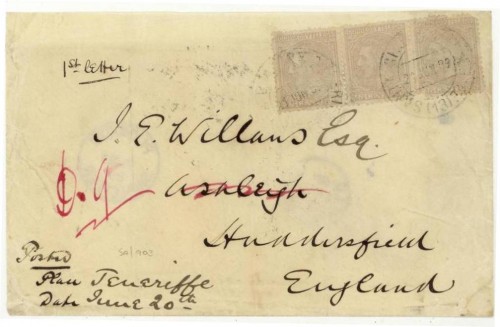 1st letter
J. E. Willans Esq.
D. G
Ashleigh
Huddersfield
England
Posted
Plan Teneriffe
Date June 20th